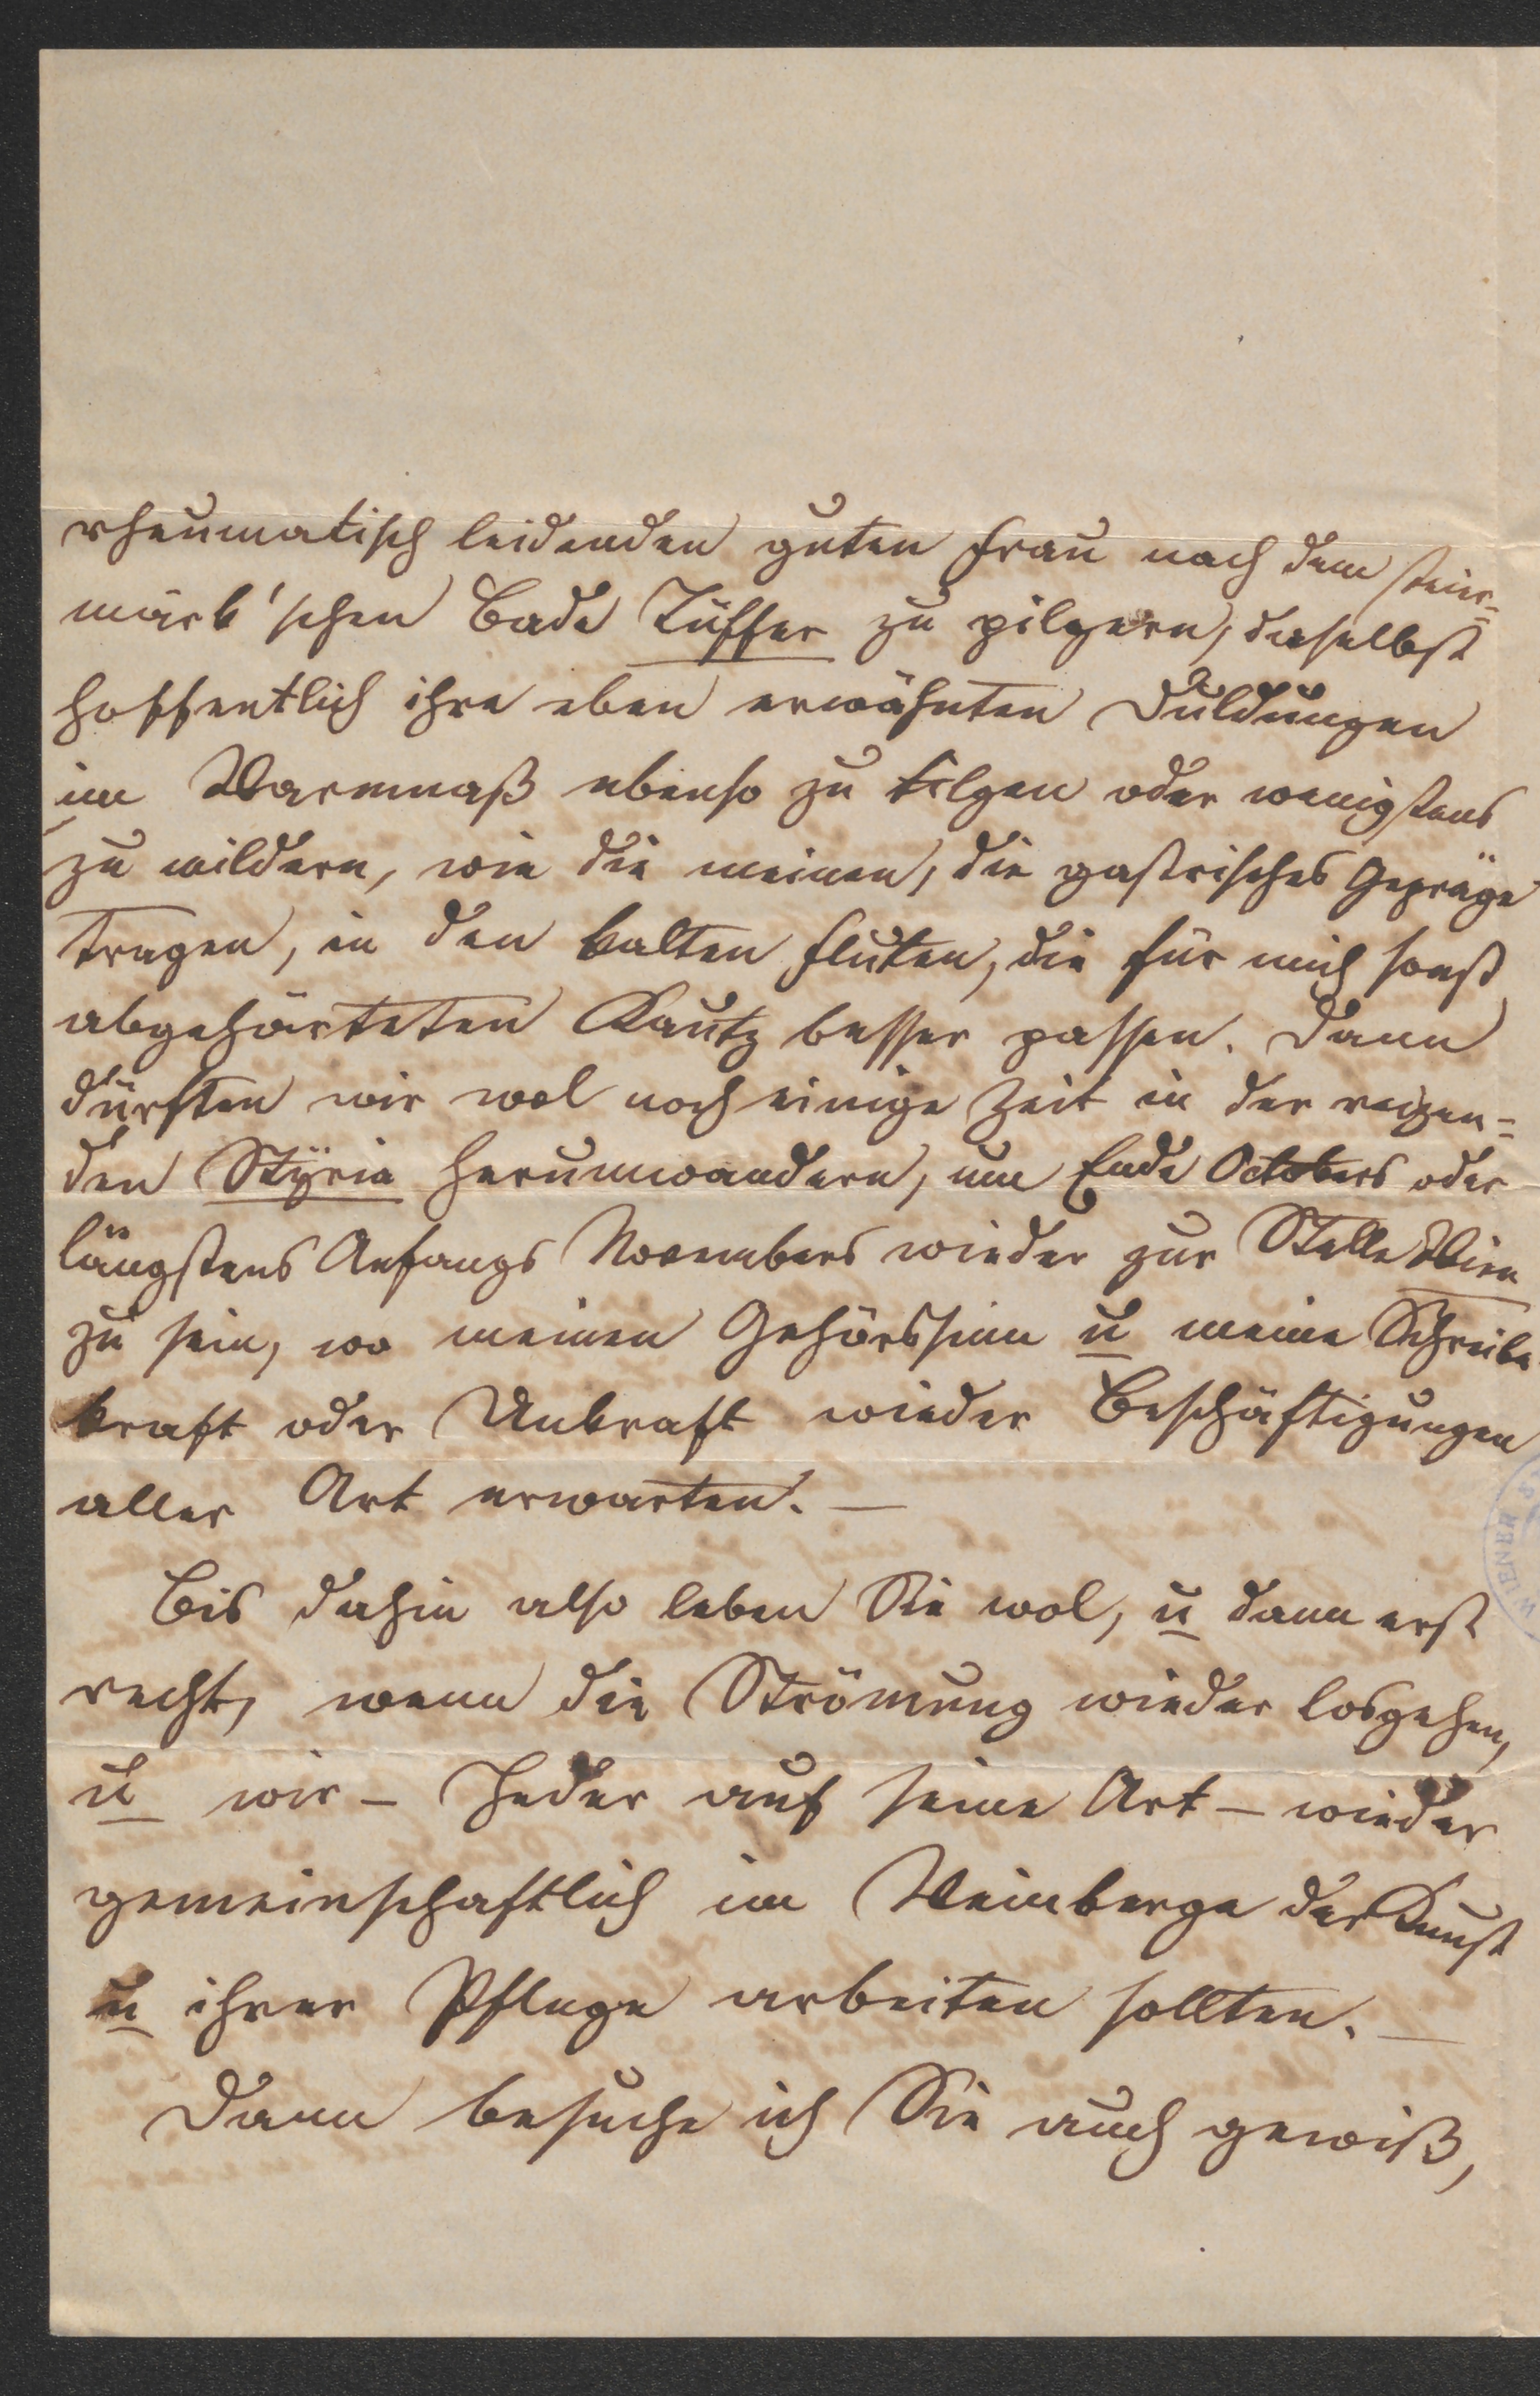 rheumatisch leidenden guten Frau nach dem steier=
märk'schen Bade Tüffer zu pilgern, daselbst
hoffentlich ihre eben erwähnten Duldungen
im Warmnaß ebenso zu tilgen oder wenigstens
zu mildern, wie die meinen, die gastrisches Gepräge
tragen, in den kalten Fluten, die für mich sonst
abgehärteten Kautz besser passen. Dann
dürften wir wol noch einige Zeit in der reizen=
den Styria herumwandern, um Ende Octobers oder
längstens Anfangs Novembers wieder zur Stelle Wien
zu sein, wo meinen Gehörssinn u meine Schreibe
kraft oder Unkraft wieder Beschäftigungen
aller Art erwarten. —
Bis dahin also leben Sie wol, u dann erst
recht, wenn die Strömung wieder losgehen,
u wir – Jeder auf seine Art – wieder
gemeinschaftlich im Weinberge der Kunst
u ihrer Pflege arbeiten sollten. —
Dann besuche ich Sie auch gewiß,
WIENER